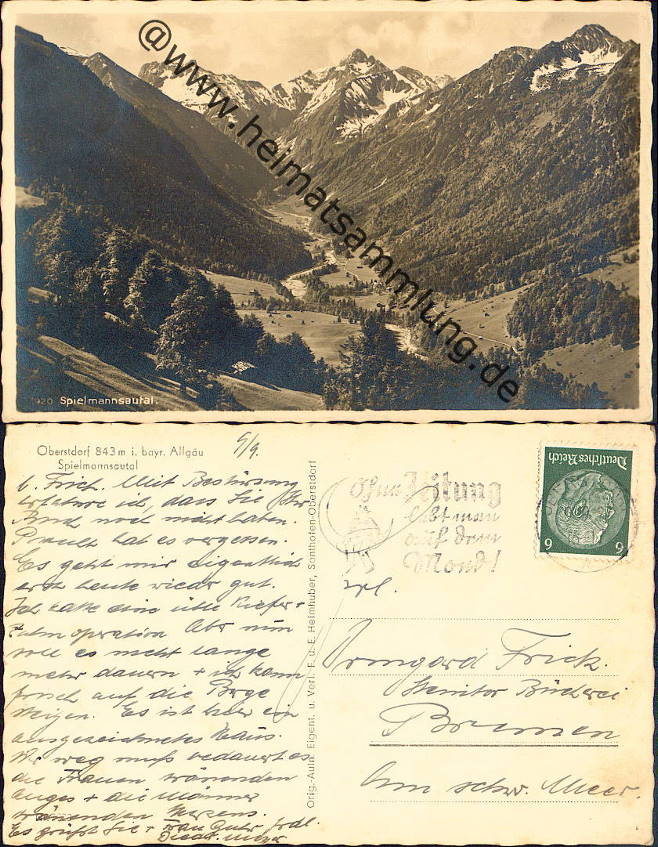 @www.heimatsammlung.de
Spielmannsautal.
Oberstdorf 843 m i. bayr. Allgäu
Spielmannsautal
9/9.
L. Frick. Mit Bestürzung
erfahre ich, dass Sie Ihr
noch nicht haben.
hat es vergessen.
Es geht mir eigentlich
erst heute wieder gut.
Ich hatte eine üble Kiefer +
operation Aber nun
soll es nicht lange
mehr dauern + ich kann
frisch auf die Berge
steigen. Es ist hier ein
ausgezeichnetes Haus.
weg muß bedauert es
die Frauen
auges + die Männer
Es grüßt Sie +
Orig.-Aufn. Eigent. u. Verl. F. u. E. Heimhuber, Sonthofen-Oberstdorf
Ohne Zeitung
lebt man
auf dem
Mond!
Deutsches Reich
6 6
Frl.
Irmgard Frick.
Bücherei
Bremen
Am schw. Meer.